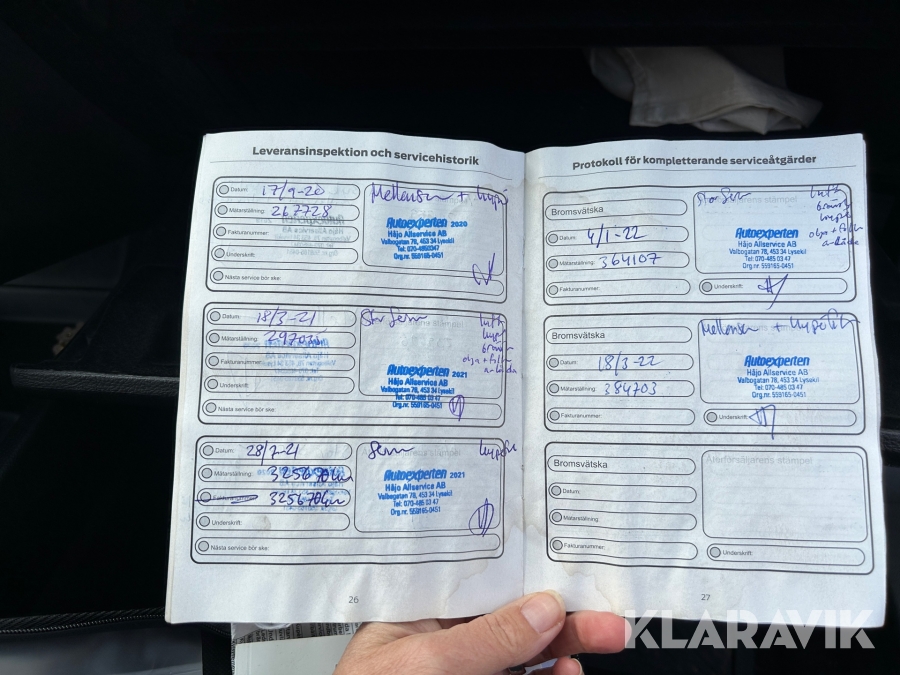 Leveransinspektion och servicehistorik
Datum: 17/9-20
Mätarställning: 267728
Fakturanummer:
Underskrift:
Nästa service bör ske:
Autoexperten 2020
Håjo Allservice AB
Valbogatan 78, 453 34 Lysekil
Tel: 070-4850347
Org.nr. 559165-0451
Datum: 18/3-21
Mätarställning:
Fakturanummer:
Underskrift:
Nästa service bör ske:
Stor Serv
Autoexperten 2021
Håjo Allservice AB
Valbogatan 78, 453 34 Lysekil
Tel: 070-485 03 47
Org.nr. 559165-0451
Datum: 28/7-21
Mätarställning:
Fakturanummer:
Underskrift:
Nästa service bör ske:
Serv
Autoexperten 2021
Håjo Allservice AB
Valbogatan 78, 453 34 Lysekil
Tel: 070-485 03 47
Org.nr. 559165-0451
26
Protokoll för kompletterande serviceåtgärder
Bromsvätska
Datum: 4/1-22
Mätarställning: 364107
Fakturanummer:
Stor Serv
Autoexperten
Håjo Allservice AB
Valbogatan 78, 453 34 Lysekil
Tel: 070-485 03 47
Org.nr. 559165-0451
Underskrift:
Bromsvätska
Datum: 18/3-22
Mätarställning: 384703
Fakturanummer:
Autoexperten
Håjo Allservice AB
Valbogatan 78, 453 34 Lysekil
Tel: 070-485 03 47
Org.nr. 559165-0451
Underskrift:
Bromsvätska
Datum:
Mätarställning:
Fakturanummer:
Återförsäljarens stämpel
Underskrift:
27
KLARAVIK